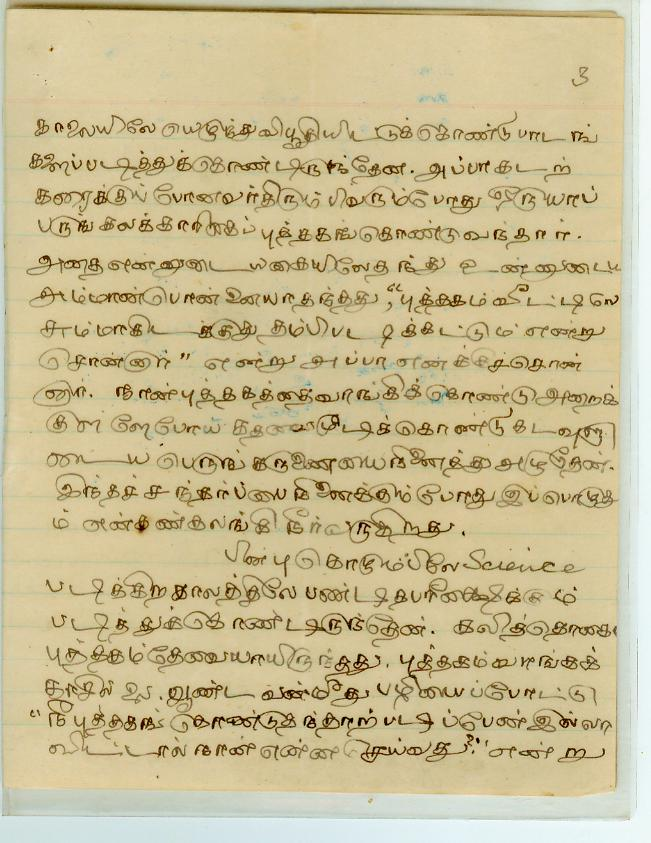 3
காலையிலே யெழுந்து விபூதியிட்டுக்கொண்டு பாடங்
களைப்படித்துக்கொண்டிருந்தேன். அப்பா கடற்
கரைக்குப் போனவர் திரும்பிவரும்போது யாப்
பருங்கலக்காரிகைப் புத்தகங்கொண்டுவந்தார்.
அதை என்னுடைய கையிலே தந்து உன்னுடைய
அம்மான் பொன்னையா தந்தது, "புத்தகம் வீட்டிலே
சும்மா கிடக்குது தம்பி படிக்கட்டும் என்று
சொன்னார்" என்று அப்பா எனக்குச்சொன்
னார். நான் புத்தகத்தை வாங்கிக்கொண்டு அறைக்
குள்ளேபோய் கதவைமூடிக்கொண்டு கடவுளு
டைய பெருங் கருணையை நினைத்து அழுதேன்.
இந்தச் சந்தர்ப்பனை நினைக்கும்போது இப்பொழுது
ம் என்கண்கலங்கி நீர்வருகிறது.
பின்பு கொழும்பிலே Science
படிக்கிற காலத்திலே பண்டிதபரீக்ஷைக்கும்
படித்துக்கொண்டிருந்தேன். கலித்தொகை
புத்தகம் தேவையாயிருந்தது. புத்தகம் வாங்கக்
காசில்லை. ஆண்டவன் மீது பழியைப்போட்டு
"நீ புத்தகங் கொண்டுதந்தாற் படிப்பேன் இல்லா
விட்டால் நான் என்ன செய்வது?" என்று